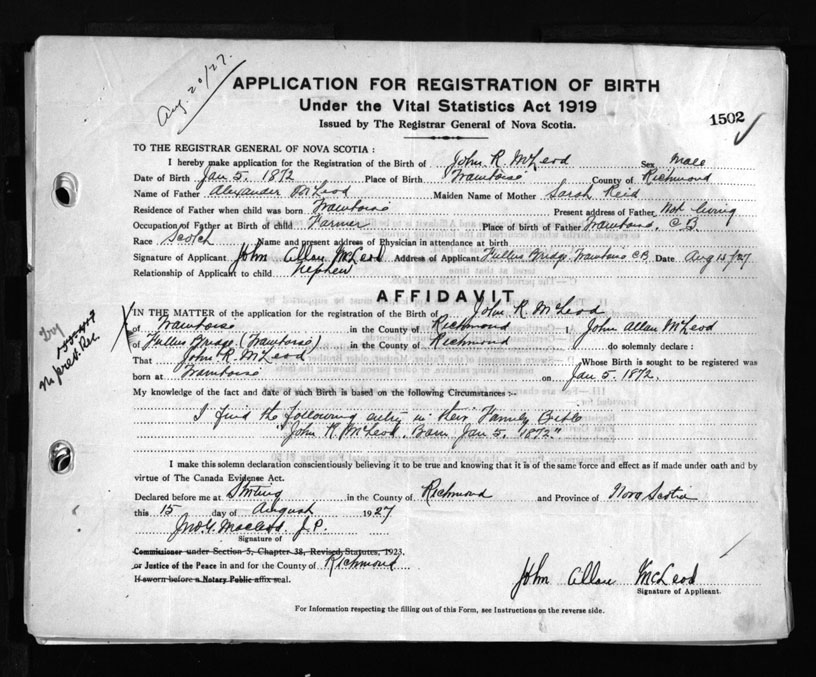 Aug. 20/27.
APPLICATION FOR REGISTRATION OF BIRTH
Under the Vital Statistics Act 1919
Issued by The Registrar General of Nova Scotia.
1502
TO THE REGISTRAR GENERAL OF NOVA SCOTIA :
I hereby make application for the Registration of the Birth of John R. McLeod Sex Male
Date of Birth Jan 5. 1872 Place of Birth Framboise County of Richmond
Name of Father Alexander McLeod Maiden Name of Mother Sarah Reid
Residence of Father when child was born Framboise Present address of Father Not living
Occupation of Father at Birth of child Farmer Place of birth of Father Framboise, C.B.
Race Scotch Name and present address of Physician in attendance at birth
Signature of Applicant John Allan McLeod Address of Applicant Bridge Framboise C.B. Date Aug 15/27
Relationship of Applicant to child nephew
AFFIDAVIT
IN THE MATTER of the application for the registration of Birth of John R. McLeod
of Framboise in the County of Richmond I, John Allan McLeod
of Bridge (Framboise) in the County of Richmond do solemnly declare :
That John R. McLeod Whose Birth is sought to be registered was
born at Framboise on Jan 5. 1872.
My knowledge of the fact and date of such Birth is based on the following Circumstances :-
I find the following entry in their Family Bible
"John R. McLeod. Born Jan 5, 1872."
I make this solemn declaration conscientiously believing it to be true and knowing that it is of the same force and effect as if made under oath and by
virtue of The Canada Evidence Act.
Declared before me at Stirling in the County of Richmond and Province of Nova Scotia
this 15 day of August 1927
MacLeod. J.P.
Signature of
Commissioner under Section 5, Chapter 38, Revised Statutes, 1923,
or Justice of the Peace in and for the County of Richmond
If sworn before a Notary Public affix seal.
John Allan McLeod
Signature of Applicant.
For Information respecting the filling out of this Form, see Instructions on the reverse side.